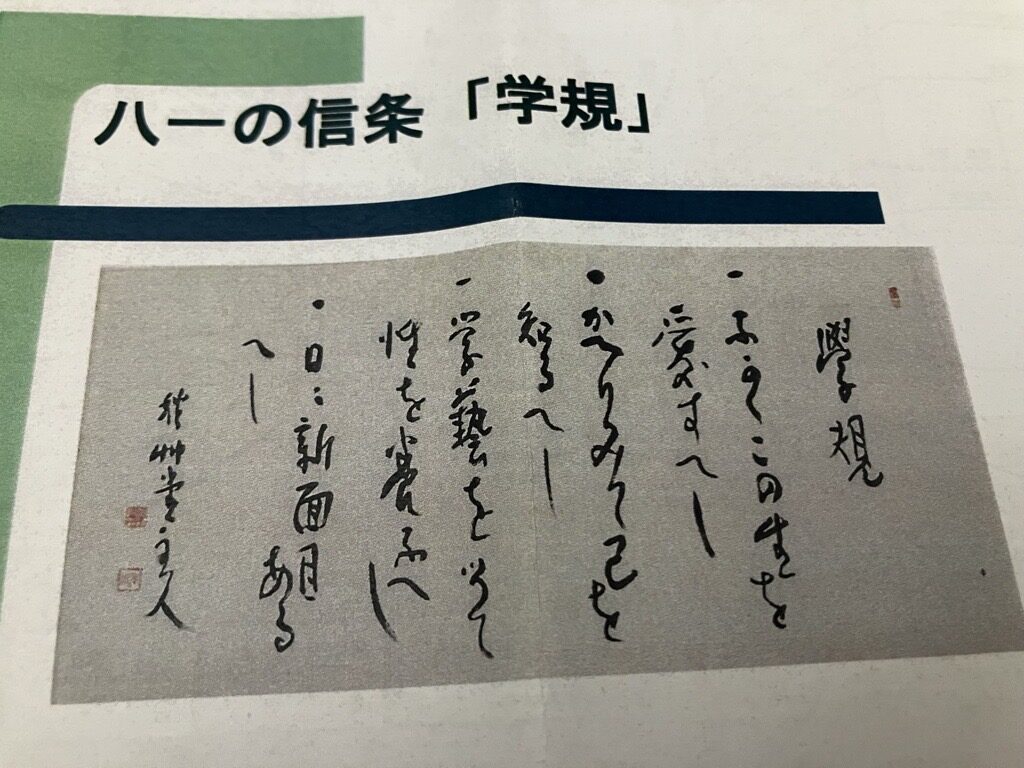 八一の信条「学規」
學規
・ふかくこの生を
愛すへし
・かへりみて己を
知るへし
・学藝を以て
性を養ふへし
・日々新面目ある
へし
秋艸堂主人